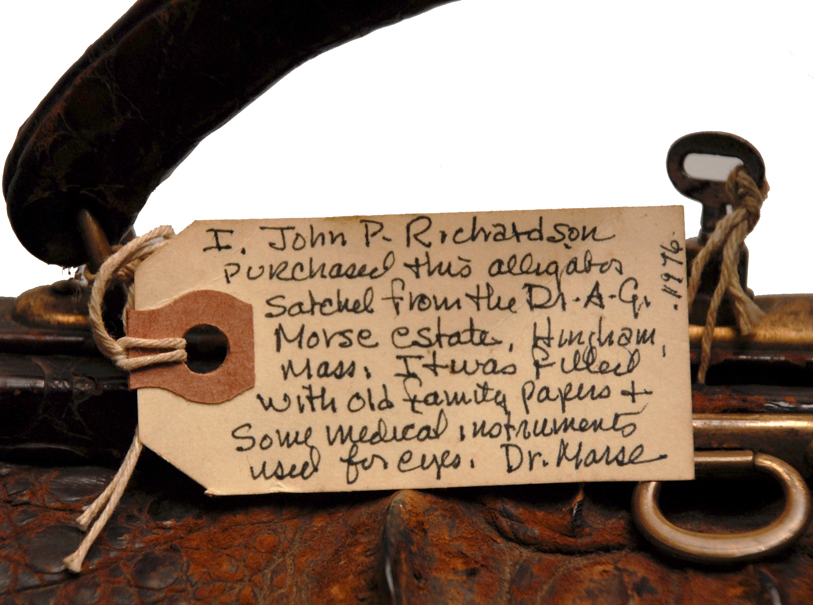 I, John P. Richardson
purchased this alligator
Satchel from the Dr. A. G.
Morse estate, Hingham,
Mass. It was filled
with old family papers +
Some medical instruments
used for eyes. Dr. Morse
1976